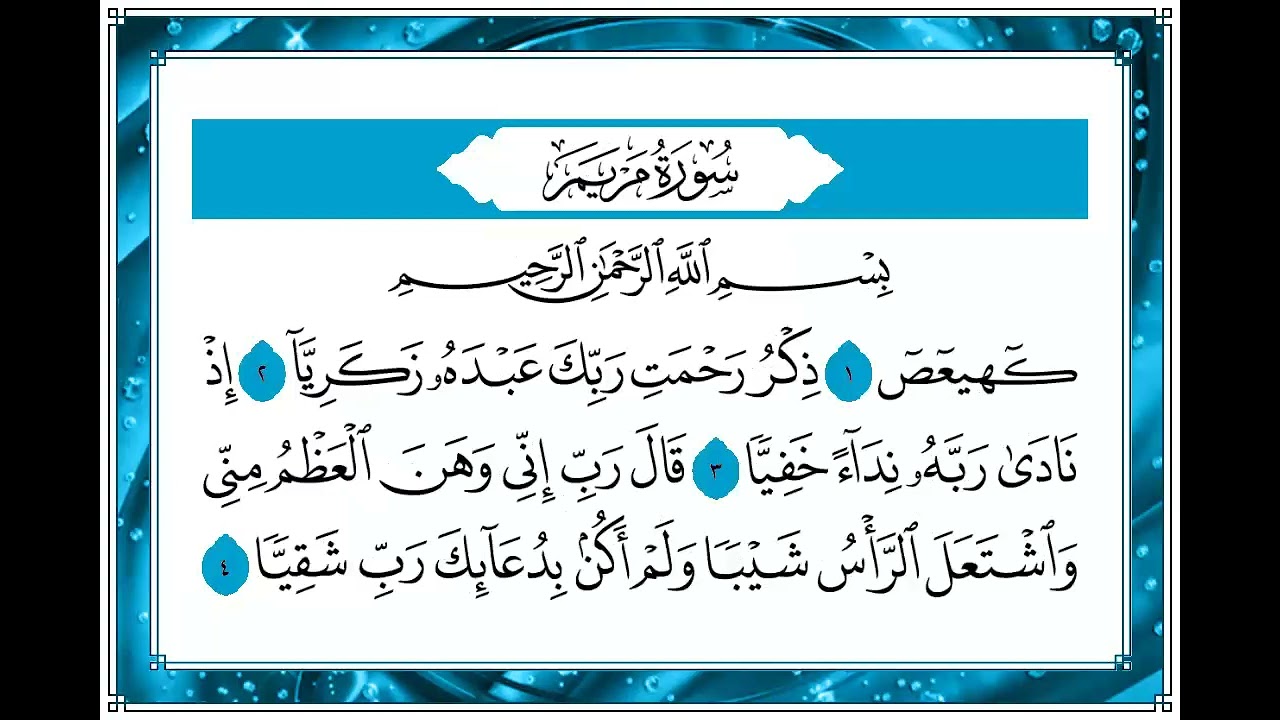 سُورَةُ مَرْيَمَ
بِسْمِ ٱللَّهِ ٱلرَّحْمَٰنِ ٱلرَّحِيمِ
كٓهيعٓصٓ ١ ذِكْرُ رَحْمَتِ رَبِّكَ عَبْدَهُۥ زَكَرِيَّآ ٢ إِذْ
نَادَىٰ رَبَّهُۥ نِدَآءً خَفِيًّا ٣ قَالَ رَبِّ إِنِّى وَهَنَ ٱلْعَظْمُ مِنِّى
وَٱشْتَعَلَ ٱلرَّأْسُ شَيْبًا وَلَمْ أَكُنۢ بِدُعَآئِكَ رَبِّ شَقِيًّا ٤